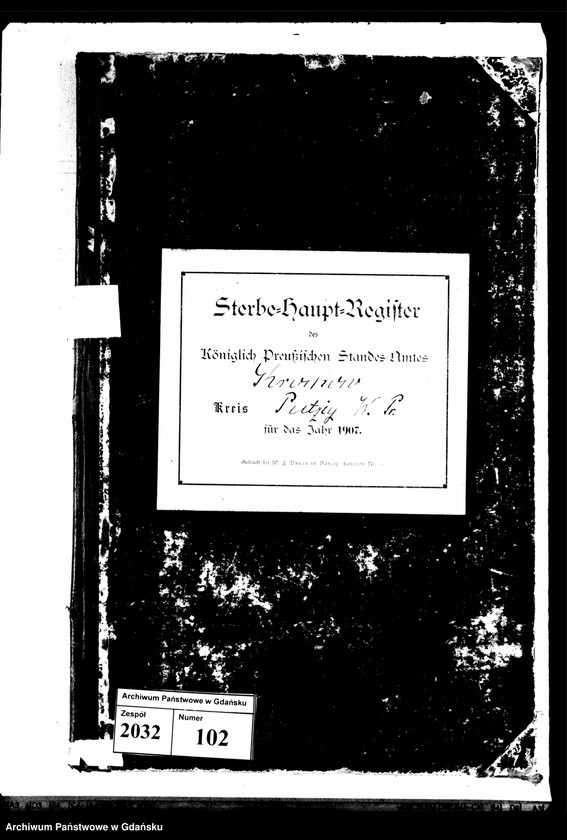 Sterbe-Haupt-Register
des
Königlich Preußischen Standes-Amtes
Krockow
Kreis Putzig W. Pr.
für das Jahr 1907.
Archiwum Państwowe w Gdańsku
Zespół Numer
2032 102
Archiwum Państwowe w Gdańsku